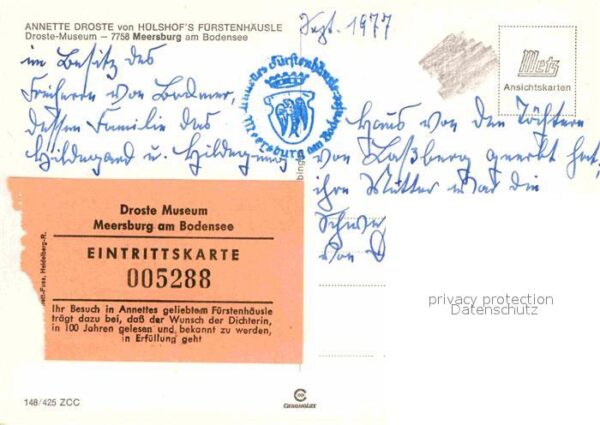 ANNETTE DROSTE von HÜLSHOF'S FÜRSTENHÄUSLE
Droste-Museum – 7758 Meersburg am Bodensee
Sept. 1977
Metz
Ansichtskarten
im Besitz des
Freiherrn von Bodmer,
dessen Familie das
Hildegard u. Hildegund
Haus von den Töchtern
von Laßberg geerbt hat,
ihre Mutter war die
Schwe
von D
Annettes Fürstenhäusle
Meersburg am Bodensee
Droste Museum
Meersburg am Bodensee
EINTRITTSKARTE
005288
Ihr Besuch in Annettes geliebtem Fürstenhäusle
trägt dazu bei, daß der Wunsch der Dichterin,
in 100 Jahren gelesen und bekannt zu werden,
in Erfüllung geht
Heidelberg-R.
privacy protection
Datenschutz
148/425 ZCC